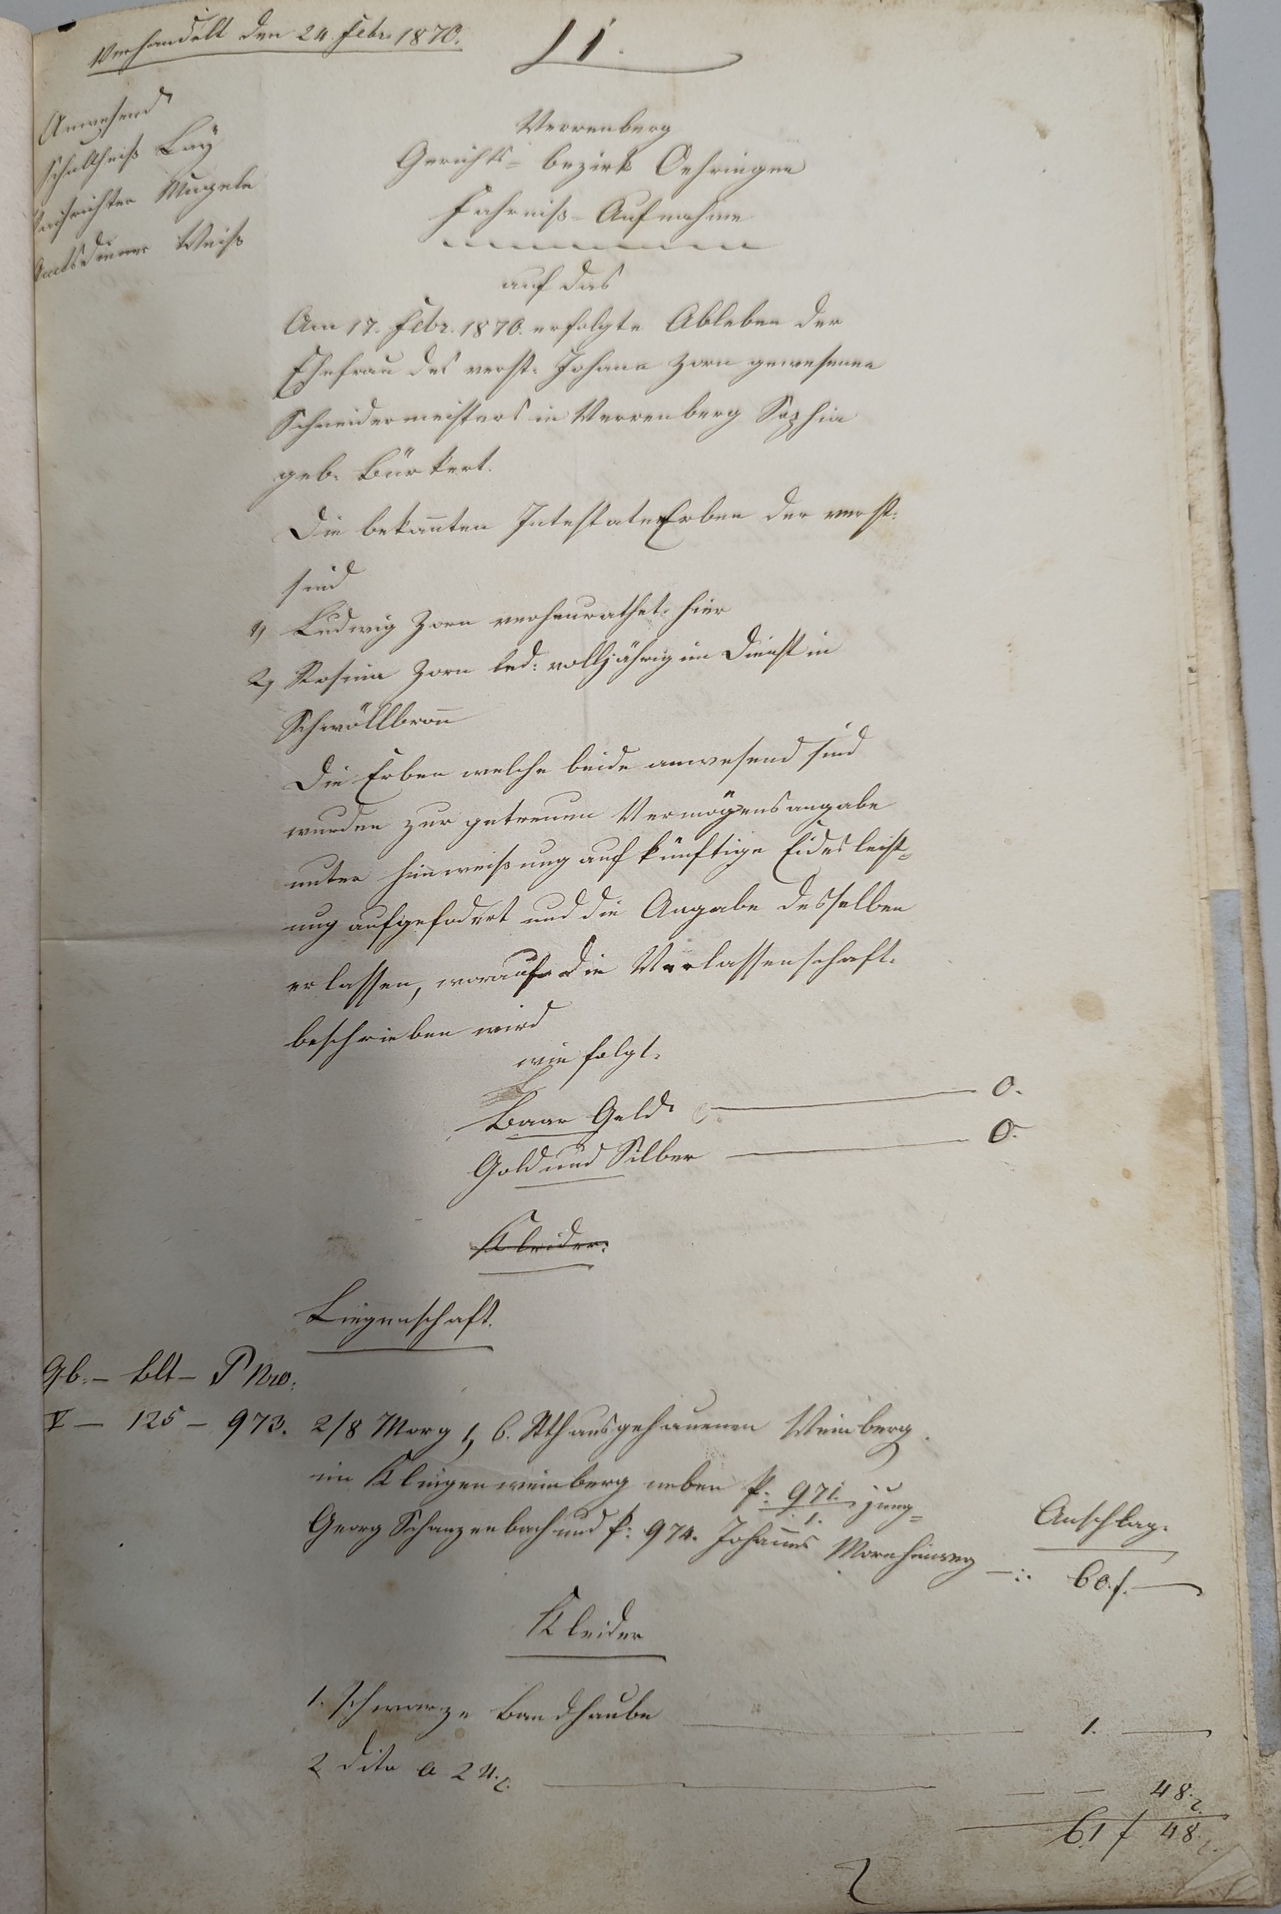 Verhandelt den 24. Febr. 1870.
11.
Anwesend
Schultheiß Lay
Mugele
Amtsdiener Weiß
Verrenberg
Gerichts-bezirk Oehringen
Fahrniß-Aufnahme
auf das
Am 17. Febr. 1870. erfolgte Ableben der
Ehefrau des verst. Johann Zorn gewesenen
Schneidermeisters in Verrenberg Sophia
geb. Bürkert.
Die bekannten Intestaterben der verst.
sind
1, Ludwig Zorn verheurathet hier
2, Rosina Zorn led: volljährig im Dienst in
Schwöllbronn
Die Erben welche beide anwesend sind
wurden zur getreuen Vermögensangabe
unter Hinweißung auf künftige Eidesleist-
ung aufgefodert und die Angabe desselben
erlassen, worauf die Verlassenschaft
beschrieben wird
wie folgt.
Baar Geld 0.
Gold und Silber 0.
Kleider.
Liegenschaft.
Gb. - Blt - P Nro:
V - 125 - 973. 2/8 Morg 1, 6. Rth ausgehauenen Weinberg
im Klingenweinberg neben P: 971. jung
1.
Georg Schanzenbach und P: 974. Johannes Mornhinweg
Anschlag.
60 f. —
Kleider
1. schwarze Bandhaube 1. —
2 dito a 24. — — 48.
61 f 48.